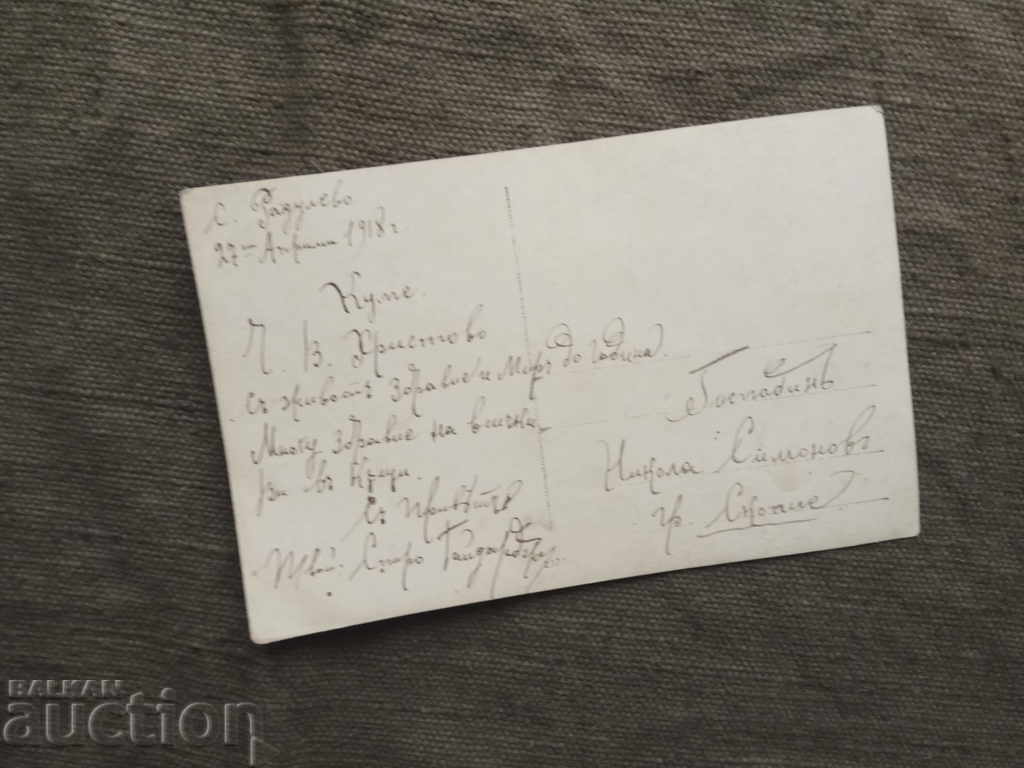 с. Радулево
27-ми Априлий 1918 г.
Куме.
Ч. В. Христово
Съ животъ здравие и Миръ до година.
Многу здравие на всички
ви въ
Съ Приветъ
Твой Спиро
Господинъ
Никола Симоновъ
гр. Скопие
BALKAN
auction